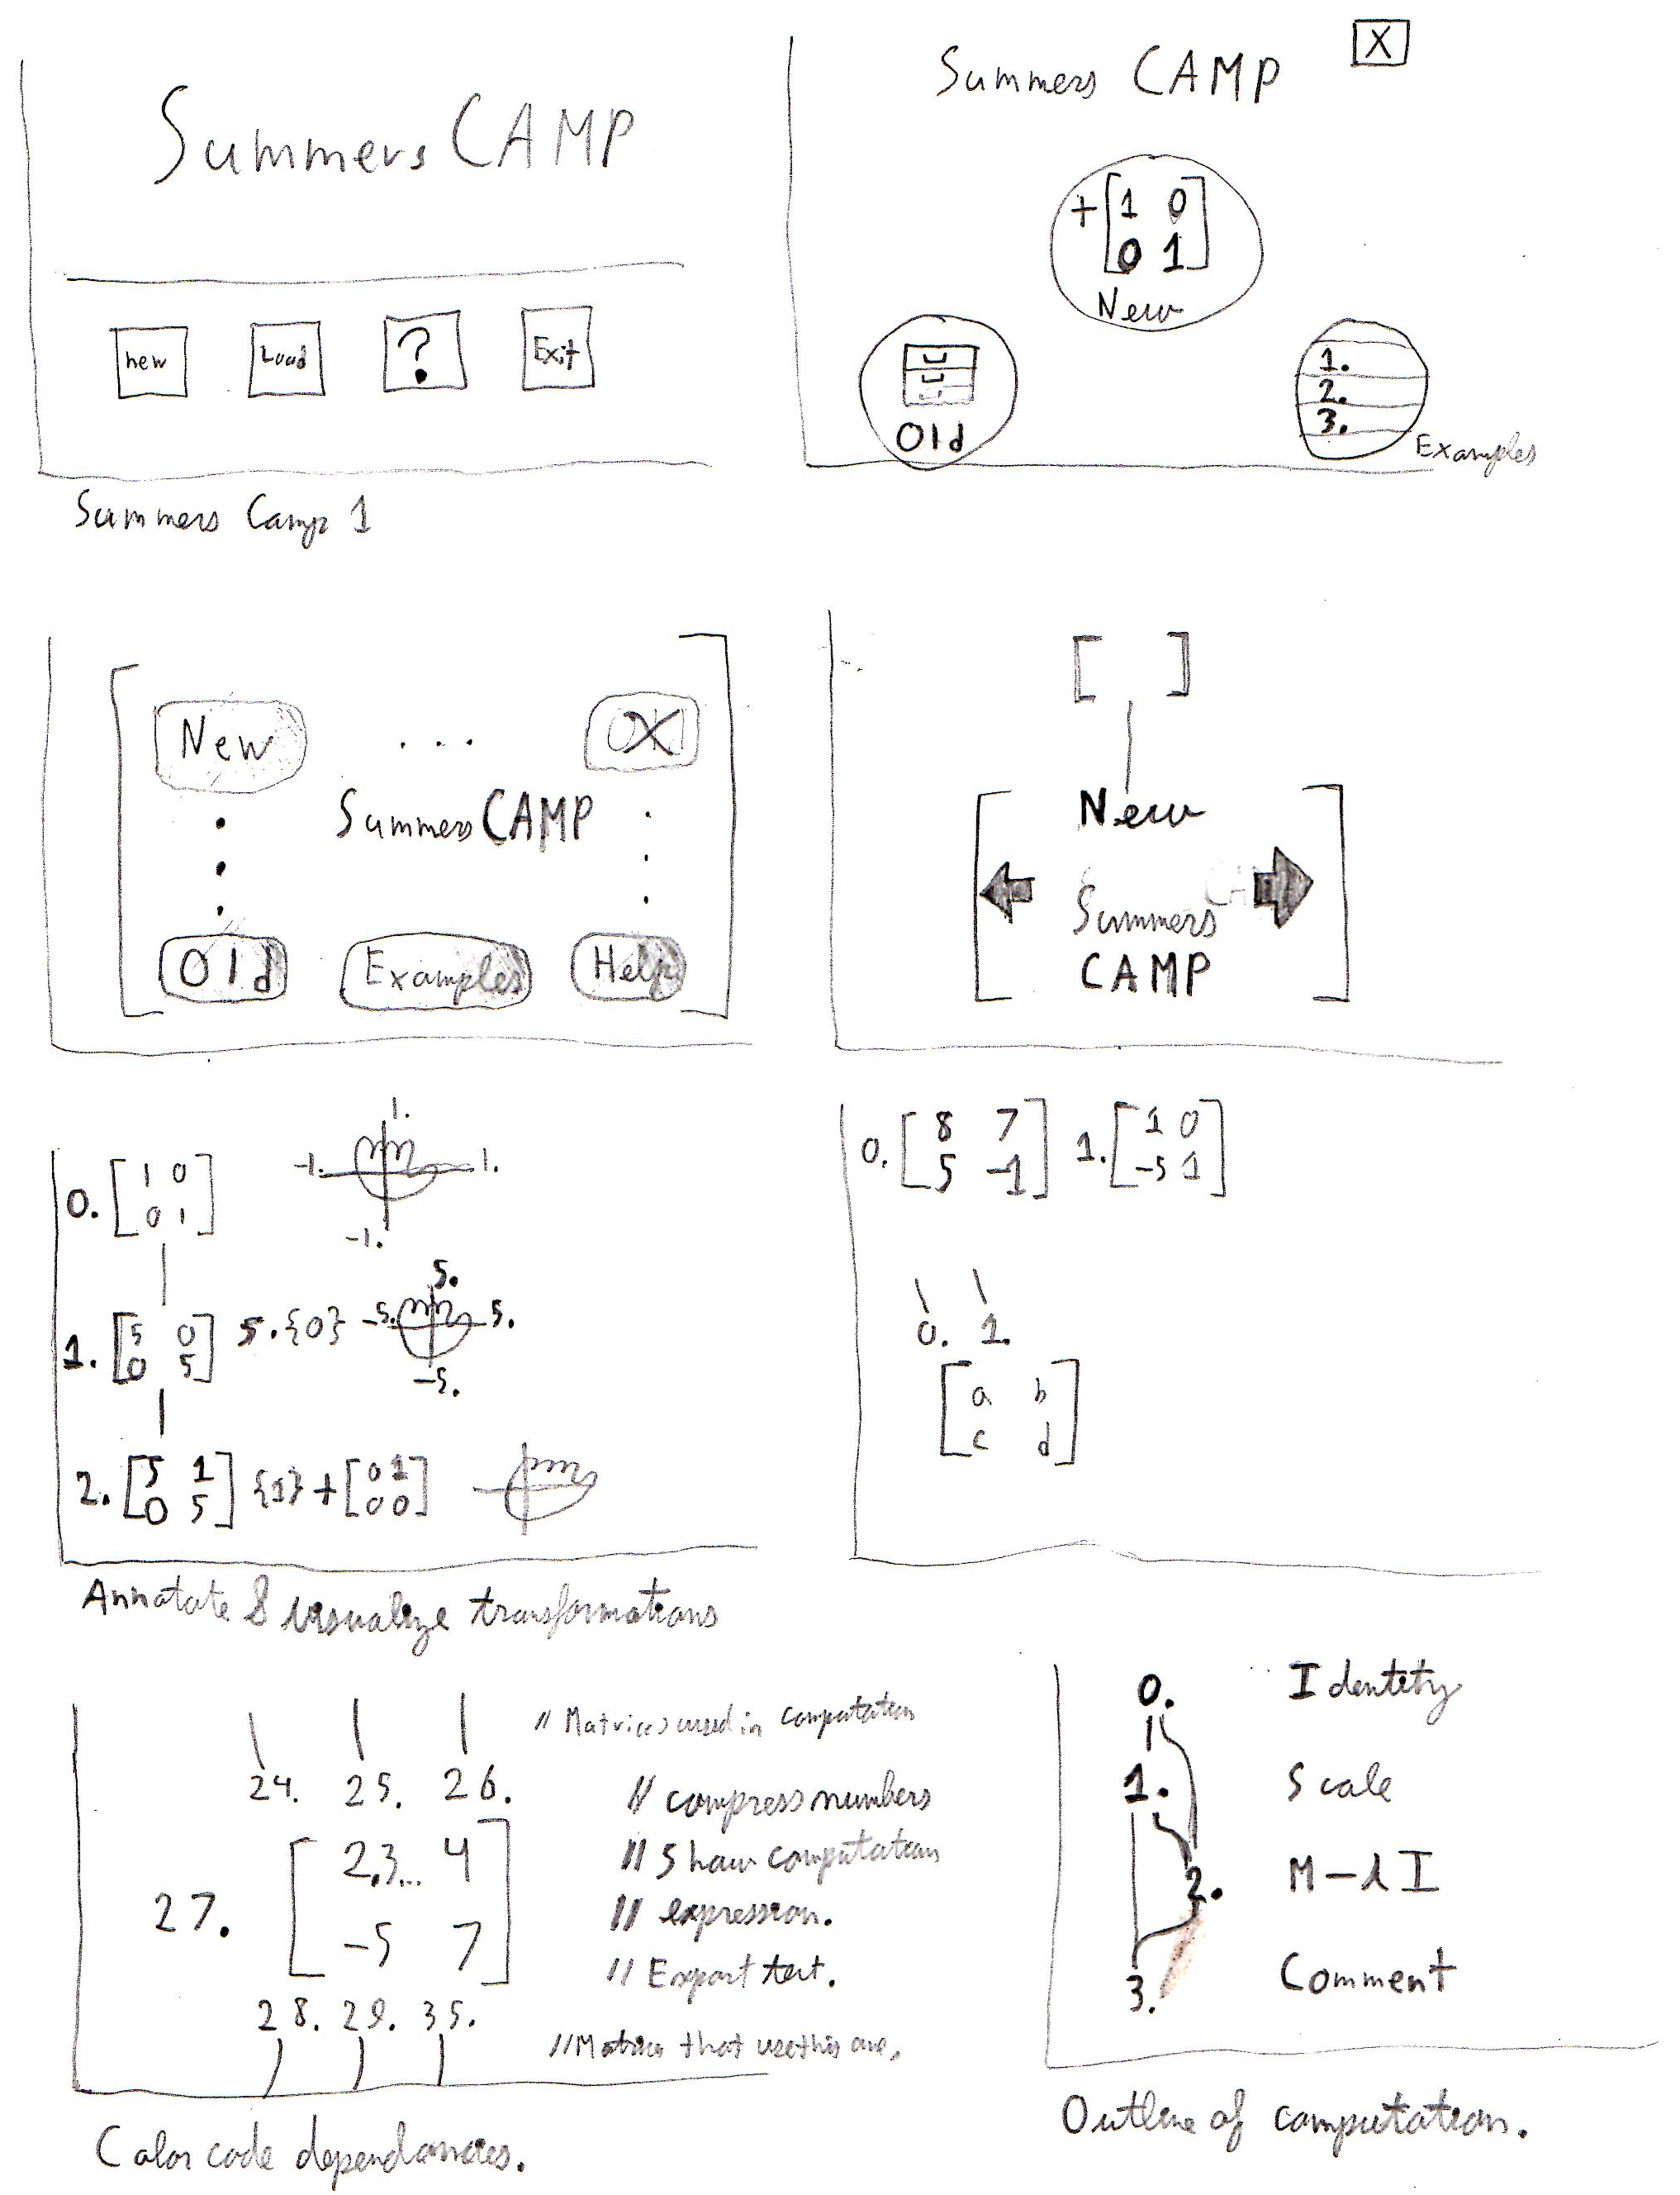 Summers CAMP
new Load ? Exit
Summers Camp 1
Summers CAMP X
+[1 0
0 1]
New
Old
1.
2.
3.
Examples
New ... X
Summers CAMP
Old Examples Help
[ ]
New
Summers
CAMP
0. [1 0
0 1]
1.
-1. 1.
-1.
1. [5 0
0 5] 5.{0}
5.
-5. 5.
-5.
2. [5 1
0 5] {1}+[0 1
0 0]
Annotate & visualize transformations
0. [8 7
5 -1] 1. [1 0
-5 1]
0. 1.
[a b
c d]
// Matrices used in computation
24. 25. 26. // compress numbers
[2.3... 4 // Show computation
27. // expression.
-5 7] // Export text.
28. 29. 35.
// Matrices that use this one.
Color code dependancies.
0. Identity
1. Scale
2. M-λI
3. Comment
Outline of computation.